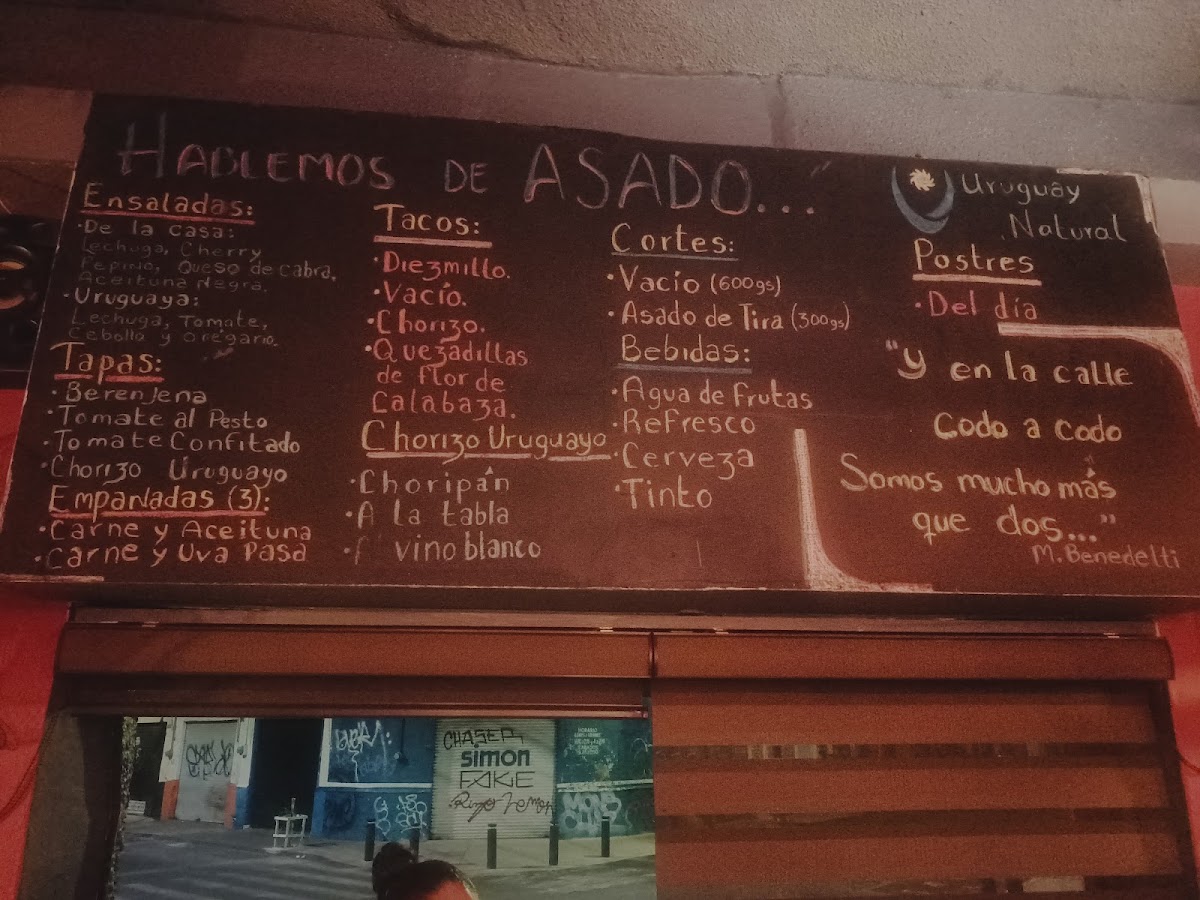 HABLEMOS DE ASADO..."
Ensaladas:
·De la casa:
Lechuga, Cherry
Pepino, Queso de cabra,
Aceituna Negra.
·Uruguaya:
Lechuga, Tomate,
Cebolla y oregario.
Tapas:
·Berenjena
·Tomate al Pesto
·Tomate Confitado
·Chorizo Uruguayo
Empanadas (3):
·Carne y Aceituna
·Carne y Uva Pasa
Tacos:
·Diezmillo.
·Vacío.
·Chorizo.
·Quezadillas
de flor de
Calabaza.
Chorizo Uruguayo
·Choripán
·A la tabla
·Al vino blanco
Cortes:
·Vacío (600gs)
·Asado de Tira (300gs)
Bebidas:
·Agua de Frutas
·Refresco
·Cerveza
·Tinto
Uruguay
Natural
Postres
·Del día
"Y en la calle
codo a codo
Somos mucho más
que dos..."
M. Benedetti
CHASER
simon
FAKE